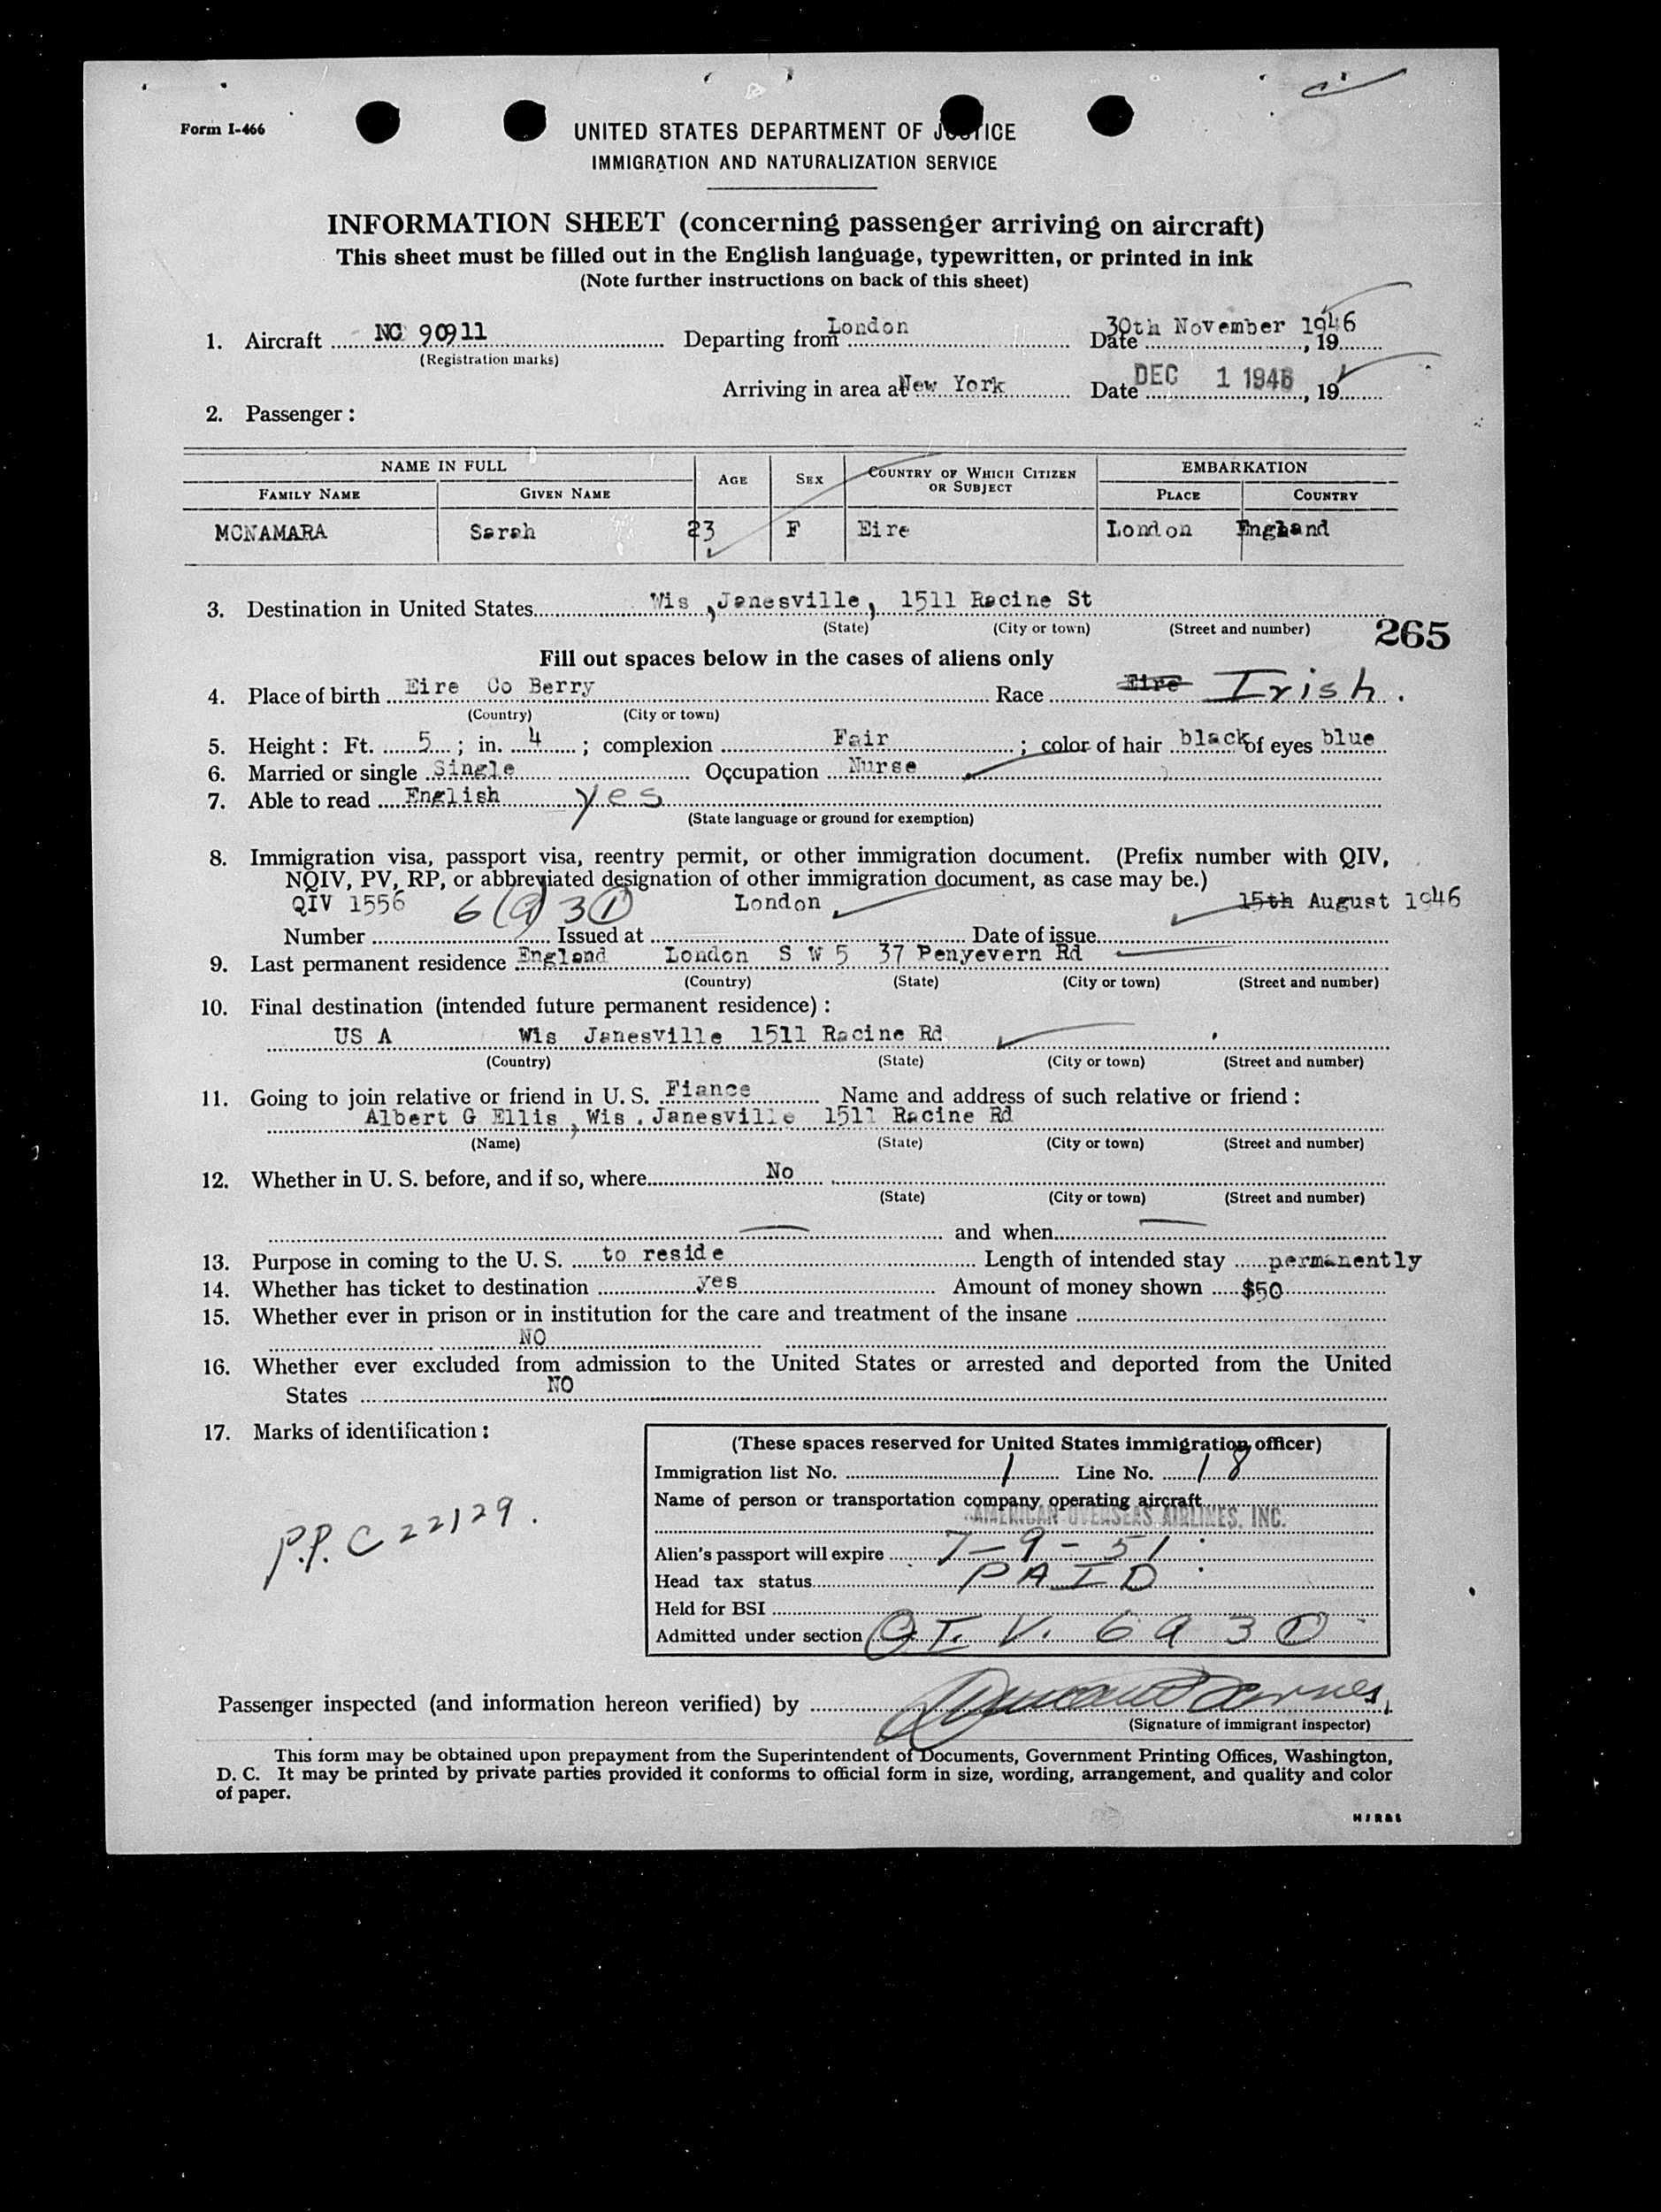 Form I-466
UNITED STATES DEPARTMENT OF JUSTICE
IMMIGRATION AND NATURALIZATION SERVICE
INFORMATION SHEET (concerning passenger arriving on aircraft)
This sheet must be filled out in the English language, typewritten, or printed in ink
(Note further instructions on back of this sheet)
1. Aircraft NC 90911 Departing from London Date 30th November 1946, 19
(Registration marks)
Arriving in area at New York Date DEC 1 1946, 19
2. Passenger:
NAME IN FULL AGE SEX COUNTRY OF WHICH CITIZEN OR SUBJECT EMBARKATION
FAMILY NAME GIVEN NAME PLACE COUNTRY
MCNAMARA Sarah 23 F Eire London England
3. Destination in United States Wis, Janesville, 1511 Racine St
(State) (City or town) (Street and number)
265
Fill out spaces below in the cases of aliens only
4. Place of birth Eire Co Berry Race Eire Irish.
(Country) (City or town)
5. Height: Ft. 5; in. 4; complexion Fair; color of hair black of eyes blue
6. Married or single Single Occupation Nurse
7. Able to read English yes
(State language or ground for exemption)
8. Immigration visa, passport visa, reentry permit, or other immigration document. (Prefix number with QIV,
NQIV, PV, RP, or abbreviated designation of other immigration document, as case may be.)
QIV 1556 6(a)3(1) London 15th August 1946
Number Issued at Date of issue
9. Last permanent residence England London S W 5 37 Penyevern Rd
(Country) (State) (City or town) (Street and number)
10. Final destination (intended future permanent residence):
US A Wis Janesville 1511 Racine Rd
(Country) (State) (City or town) (Street and number)
11. Going to join relative or friend in U. S. Fiance Name and address of such relative or friend:
Albert G Ellis, Wis. Janesville 1511 Racine Rd
(Name) (State) (City or town) (Street and number)
12. Whether in U. S. before, and if so, where No
(State) (City or town) (Street and number)
and when
13. Purpose in coming to the U. S. to reside Length of intended stay permanently
14. Whether has ticket to destination yes Amount of money shown $50
15. Whether ever in prison or in institution for the care and treatment of the insane
NO
16. Whether ever excluded from admission to the United States or arrested and deported from the United
States NO
17. Marks of identification:
P.P. C 22129.
(These spaces reserved for United States immigration officer)
Immigration list No. 1 Line No. 18
Name of person or transportation company operating aircraft
AMERICAN OVERSEAS AIRLINES, INC.
Alien's passport will expire 7-9-51
Head tax status PAID
Held for BSI
Admitted under section Q.I.V. 6 a 3 (1)
Passenger inspected (and information hereon verified) by
(Signature of immigrant inspector)
This form may be obtained upon prepayment from the Superintendent of Documents, Government Printing Offices, Washington,
D. C. It may be printed by private parties provided it conforms to official form in size, wording, arrangement, and quality and color
of paper.